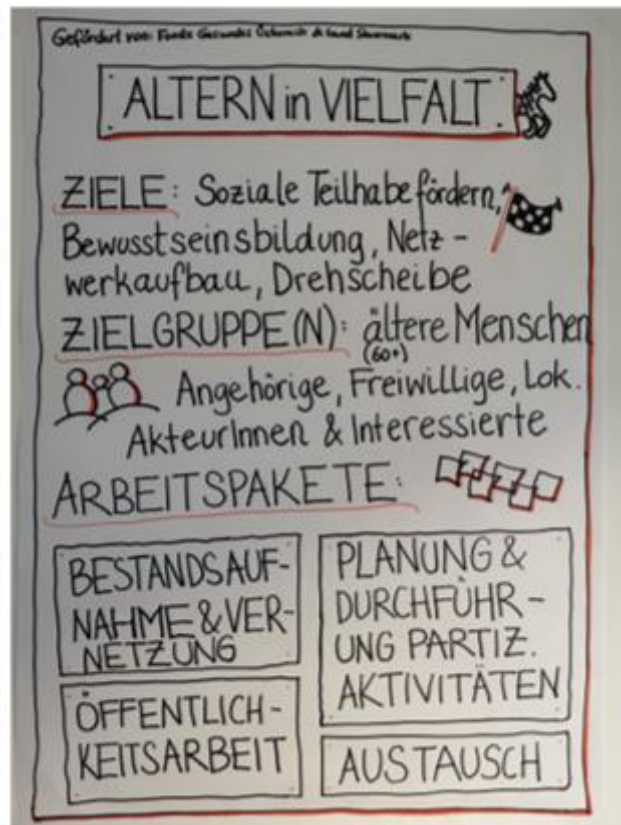 Gefördert von: Fonds Gesundes Österreich & Land Steiermark
ALTERN in VIELFALT
ZIELE: Soziale Teilhabe fördern,
Bewusstseinsbildung, Netz-
werkaufbau, Drehscheibe
ZIELGRUPPE(N): ältere Menschen
(60+)
Angehörige, Freiwillige, Lok.
AkteurInnen & Interessierte
ARBEITSPAKETE:
BESTANDSAUF-
NAHME & VER-
NETZUNG
ÖFFENTLICH-
KEITSARBEIT
PLANUNG &
DURCHFÜHR-
UNG PARTIZ.
AKTIVITÄTEN
AUSTAUSCH